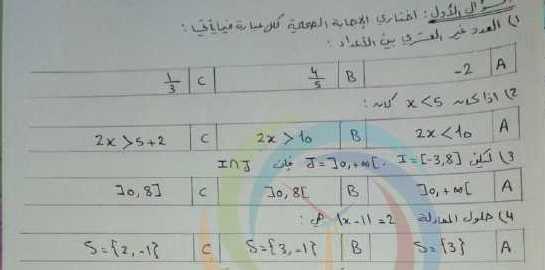 السؤال الأول: اختاري الإجابة الصحيحة لكل عبارة فيما يأتي:
1) العدد غير العشري بين الأعداد:
A -2 B 4/5 C 1/3
2) إذا كان x<5 كان:
A 2x<10 B 2x>10 C 2x>5+2
3) ليكن I=[-3,8] ، J=]0,+∞[ فإن I∩J
A ]0,+∞[ B ]0,8[ C ]0,8]
4) حلول المعادلة |x-1|=2 هي:
A S={3} B S={3,-1} C S={2,-1}